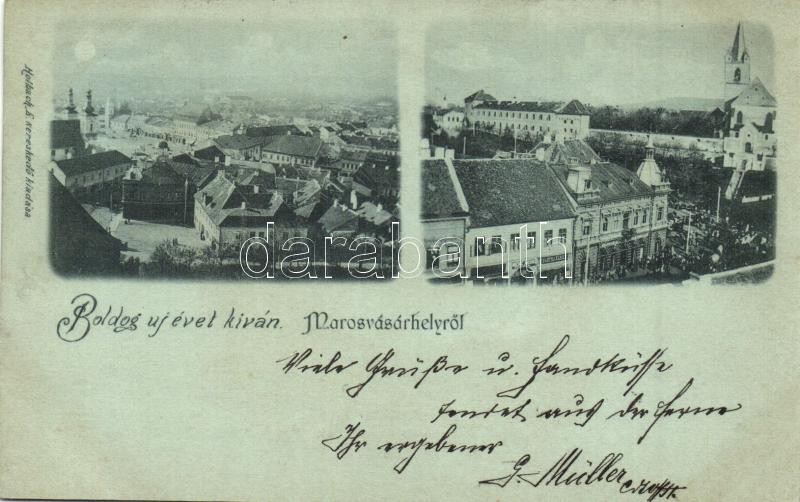 Holbach E. kereskedő kiadása
darabanth
Boldog uj évet kiván. Marosvásárhelyről
Viele Grüße u. Handküsse
sendet aus der Ferne
Ihr ergebener
G. Müller